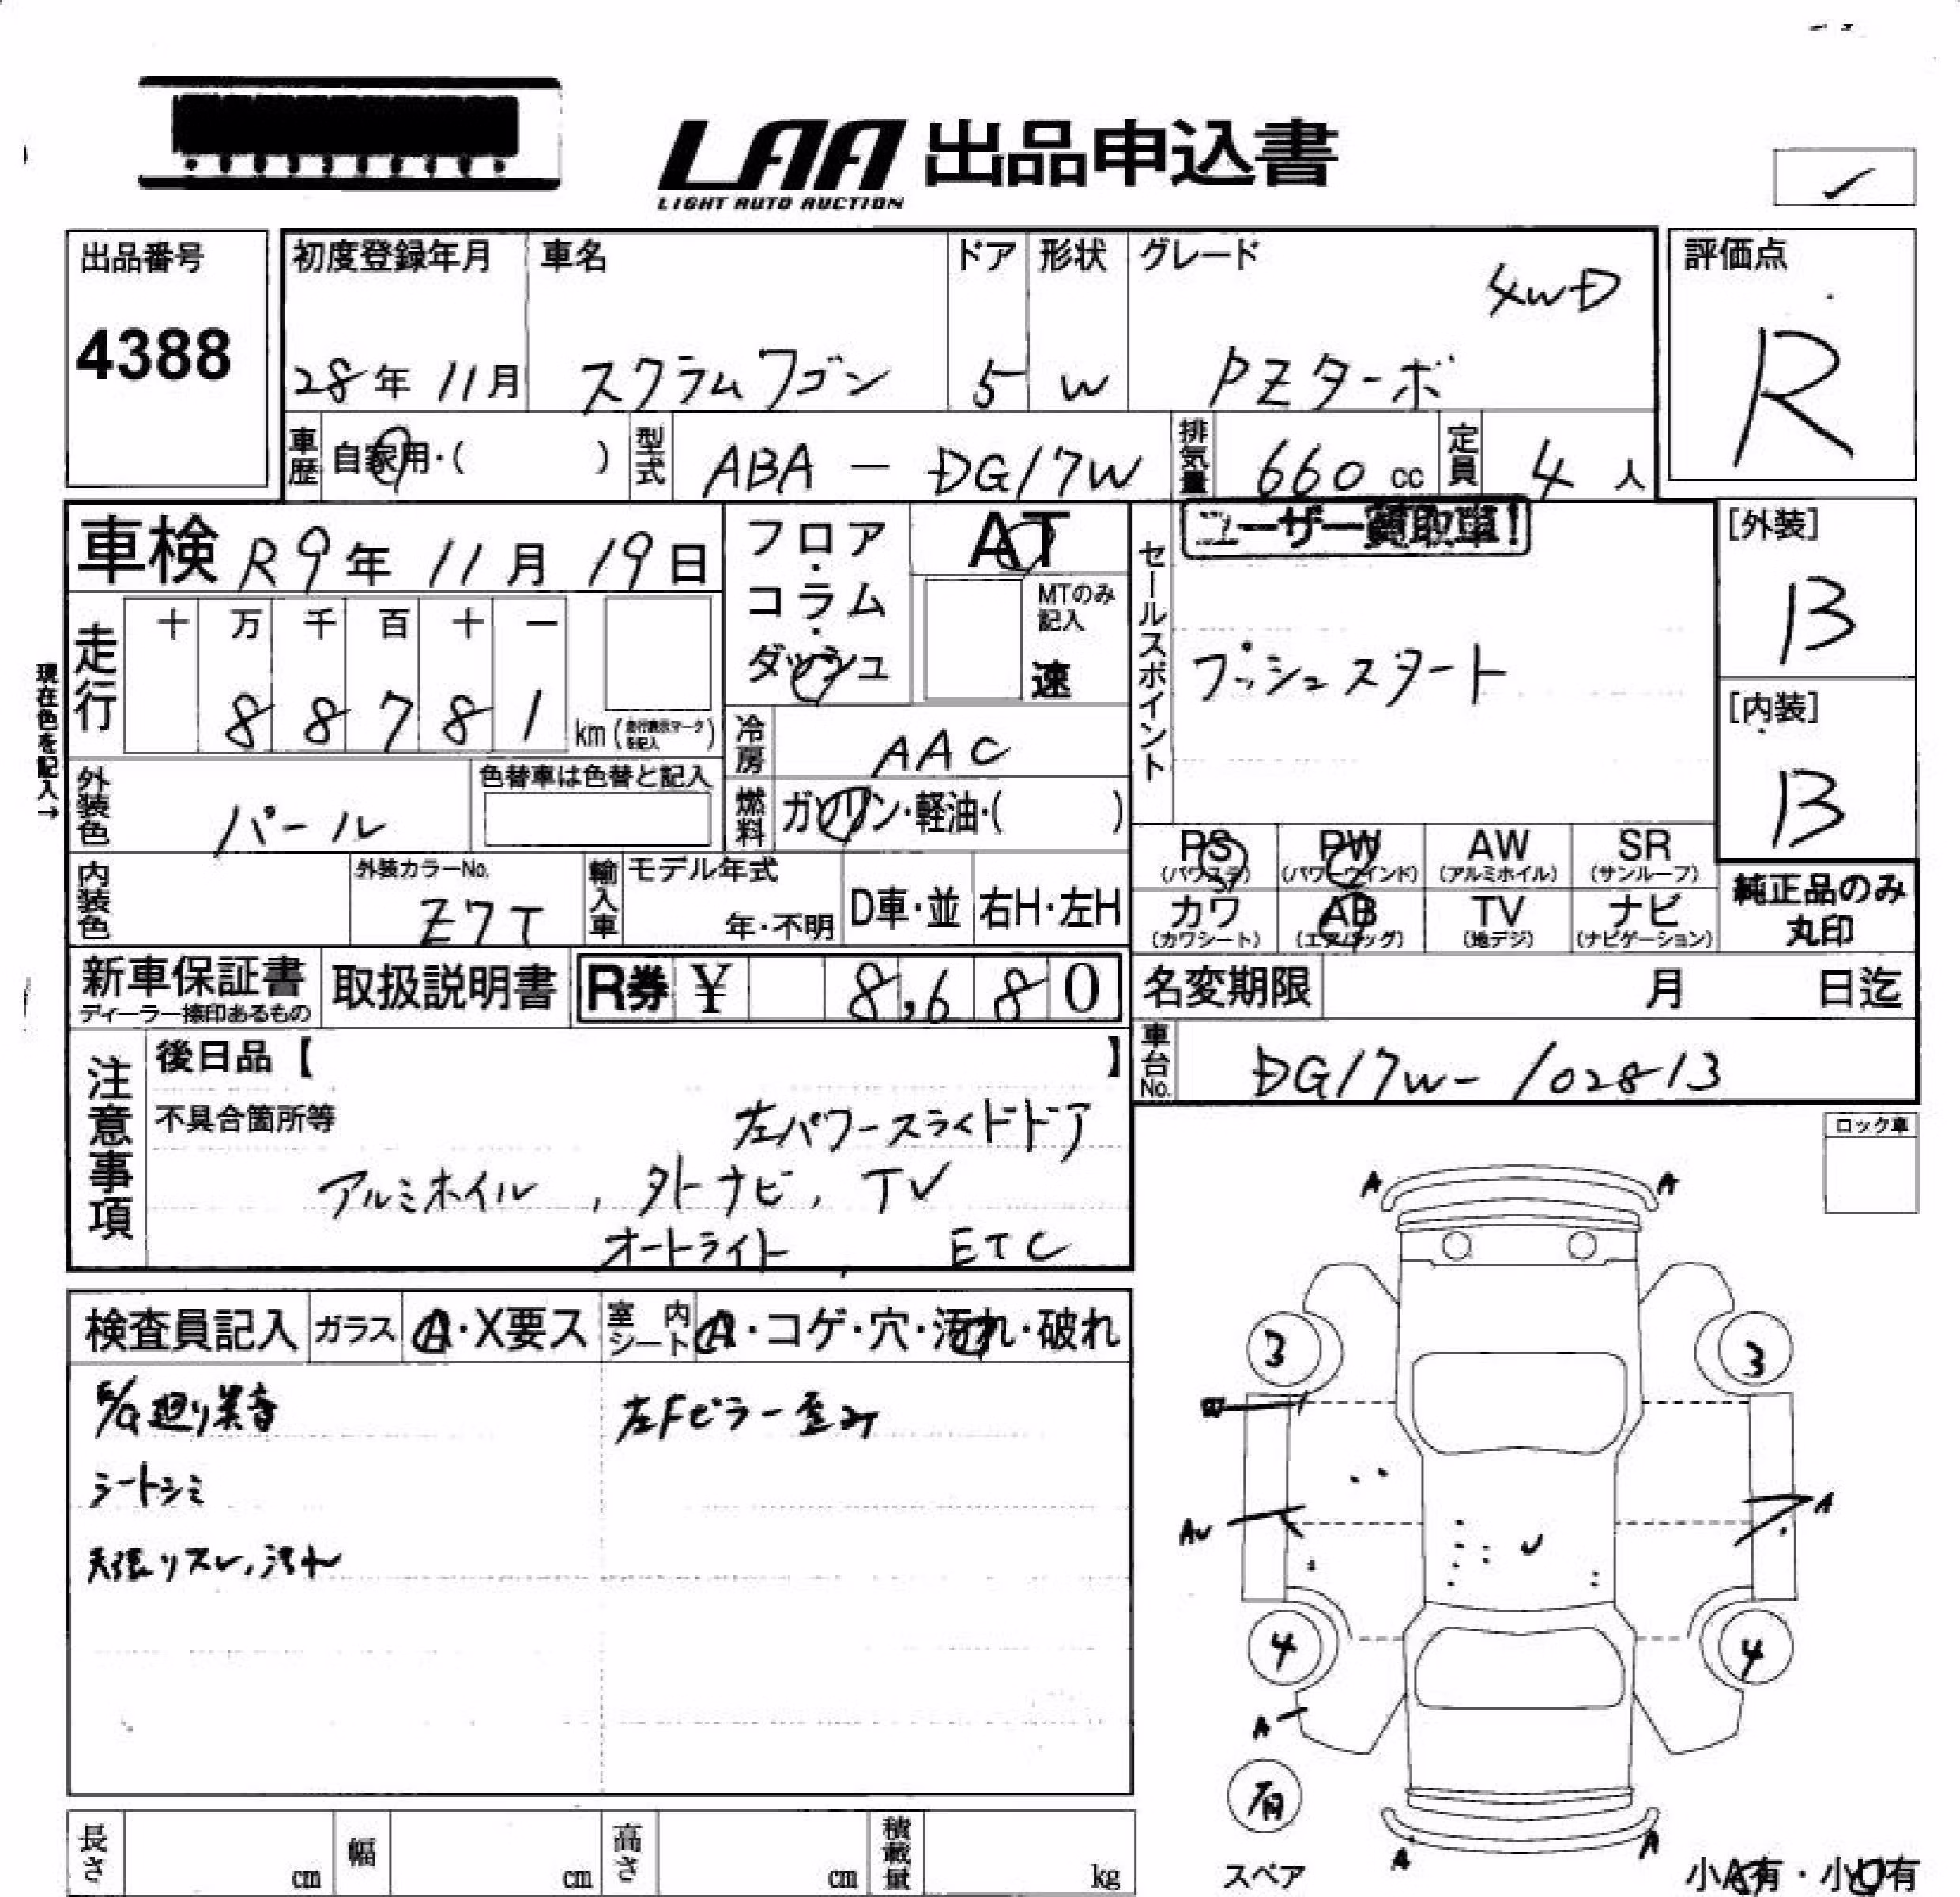 LAA 出品申込書
LIGHT AUTO AUCTION
出品番号
4388
初度登録年月
28年 11月
車名
スクラムワゴン
ドア
5
形状
W
グレード
4WD
PZターボ
評価点
R
車歴 自家用・( )
型式 ABA - DG17W
排気量 660 cc
定員 4 人
車検 R9年 11月 19日
フロア・コラム・ダッシュ
AT
MTのみ記入
速
セールスポイント
ユーザー買取車!
プッシュスタート
[外装]
B
[内装]
B
現在色を記入→
走行 十 万 千 百 十 一
8 8 7 8 1 km (走行表示マークを記入)
冷房 AAC
燃料 ガソリン・軽油・( )
外装色 パール
色替車は色替と記入
内装色
外装カラーNo.
Z7T
輸入車 モデル年式
年・不明
D車・並
右H・左H
PS (パワステ)
PW (パワーウインド)
AW (アルミホイル)
SR (サンルーフ)
カワ (カワシート)
AB (エアバッグ)
TV (地デジ)
ナビ (ナビゲーション)
純正品のみ丸印
新車保証書
ディーラー捺印あるもの
取扱説明書
R券 ¥ 8,680
名変期限 月 日迄
車台No. DG17W-102813
注意事項
後日品【 】
不具合箇所等
左パワースライドドア
アルミホイル , 外ナビ, TV
オートライト , ETC
ロック車
検査員記入
ガラス A・X要ス
室内シート A・コゲ・穴・汚れ・破れ
E/G廻り異音
左Fピラー歪み
シートシミ
天張リズレ,汚れ
A A
3 3
AU A
4 4
A
有
スペア
A A
小A有・小U有
長さ cm
幅 cm
高さ cm
積載量 kg